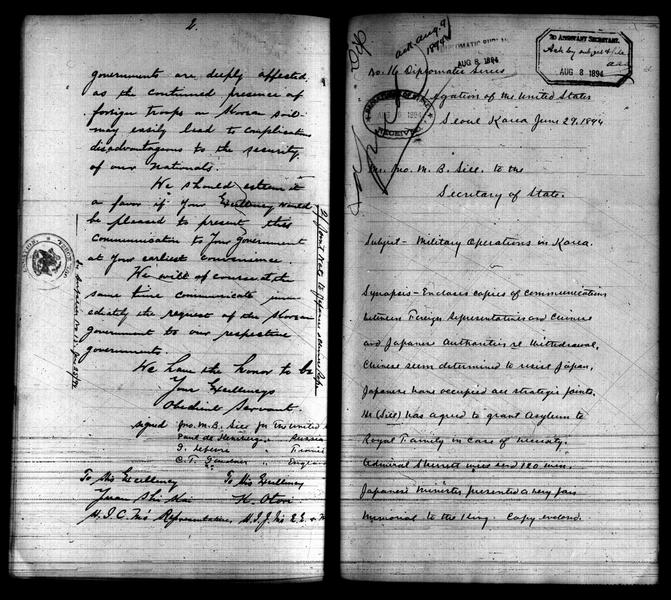 2.
governments are deeply affected
as the continued presence of
foreign troops on Korean soil
may easily lead to complications
disadvantageous to the security
of our Nationals.
We should esteem it
a favor if Your Excellency would
be pleased to present this
communication to Your Government
at Your earliest convenience.
We will of course at the
same time communicate imm-
ediately the request of the Korean
government to our respective
governments.
We have the honor to be
Your Excellencys
Obedient Servant.
signed Jno. M. B. Sill for the United
Paul de " Russia
" France
C. T. Gardner " England
To His Excellency To His Excellency
Yuan Shi Kai K. Otori
H. I. C. M's Representative, H. I. J. M's E. E. &
ack Aug. 9
1894
DIPLOMATIC BUREAU
AUG 8 1894
ASSISTANT SECRETARY
Ack by subject & file
AUG 8 1894
No. 16 Diplomatic Series
Legation of the United States
Seoul Korea June 29, 1894
DEPARTMENT OF STATE
1894
RECEIVED
Mr. Jno. M. B. Sill. to the
Secretary of State.
Subject - Military Operations in Korea.
Synopsis - Encloses copies of communications
between Foreign Representatives and Chinese
and Japanese Authorities re Withdrawal,
Chinese seem determined to resist Japan,
Japanese have occupied all strategic points.
He (Sill) has agreed to grant Asylum to
Royal Family in case of necessity.
Admiral Skerrett will send 120 men.
Japanese Minister presented a very
Memorial to the King. Copy enclosed.